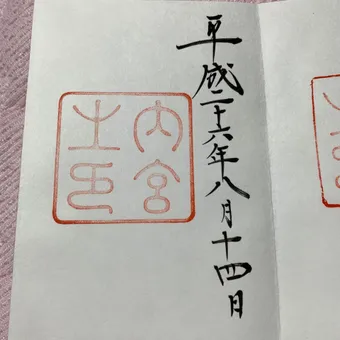 平成二十六年八月十四日
内宮
之印